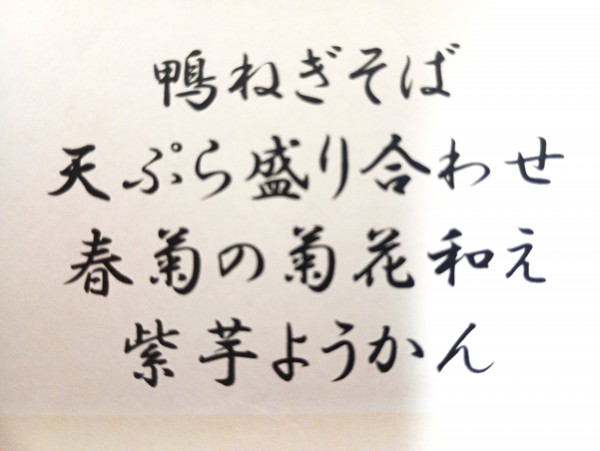 鴨ねぎそば
天ぷら盛り合わせ
春菊の菊花和え
紫芋ようかん